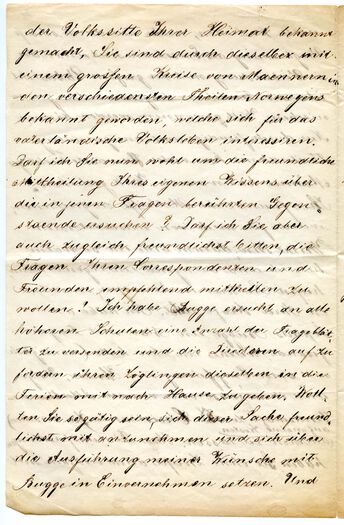 der Volkssitte Ihrer Heimat bekannt
gemacht, Sie sind durch dieselben mit
einem grossen Kreise von Maennern in
den verschiedensten Theilen Norwegens
bekannt geworden, welche sich für das
vaterländische Volksleben interessiren.
Darf ich Sie nun wohl um die freundliche
Mittheilung Ihres eigenen Wissens über
die in jenen Fragen berührten Gegen-
staende ersuchen? Darf ich Sie aber
auch zugleich freundlichst bitten, die
Fragen Ihren Correspondenzen und
Freunden empfehlend mittheilen zu
wollen? Ich habe Bugge ersucht an alle
höheren Schulen eine Anzahl der Frageblät-
ter zu versenden und die auf zu
fordern ihren Zöglingen dieselben in die
Ferien mit nach Hause zu geben. Woll-
ten Sie so gütig sein, sich dieser Sache freund-
lichst mit anzunehmen und sich über
die Ausführung meiner Wünsche mit
Bugge in Einvernehmen setzen. Und